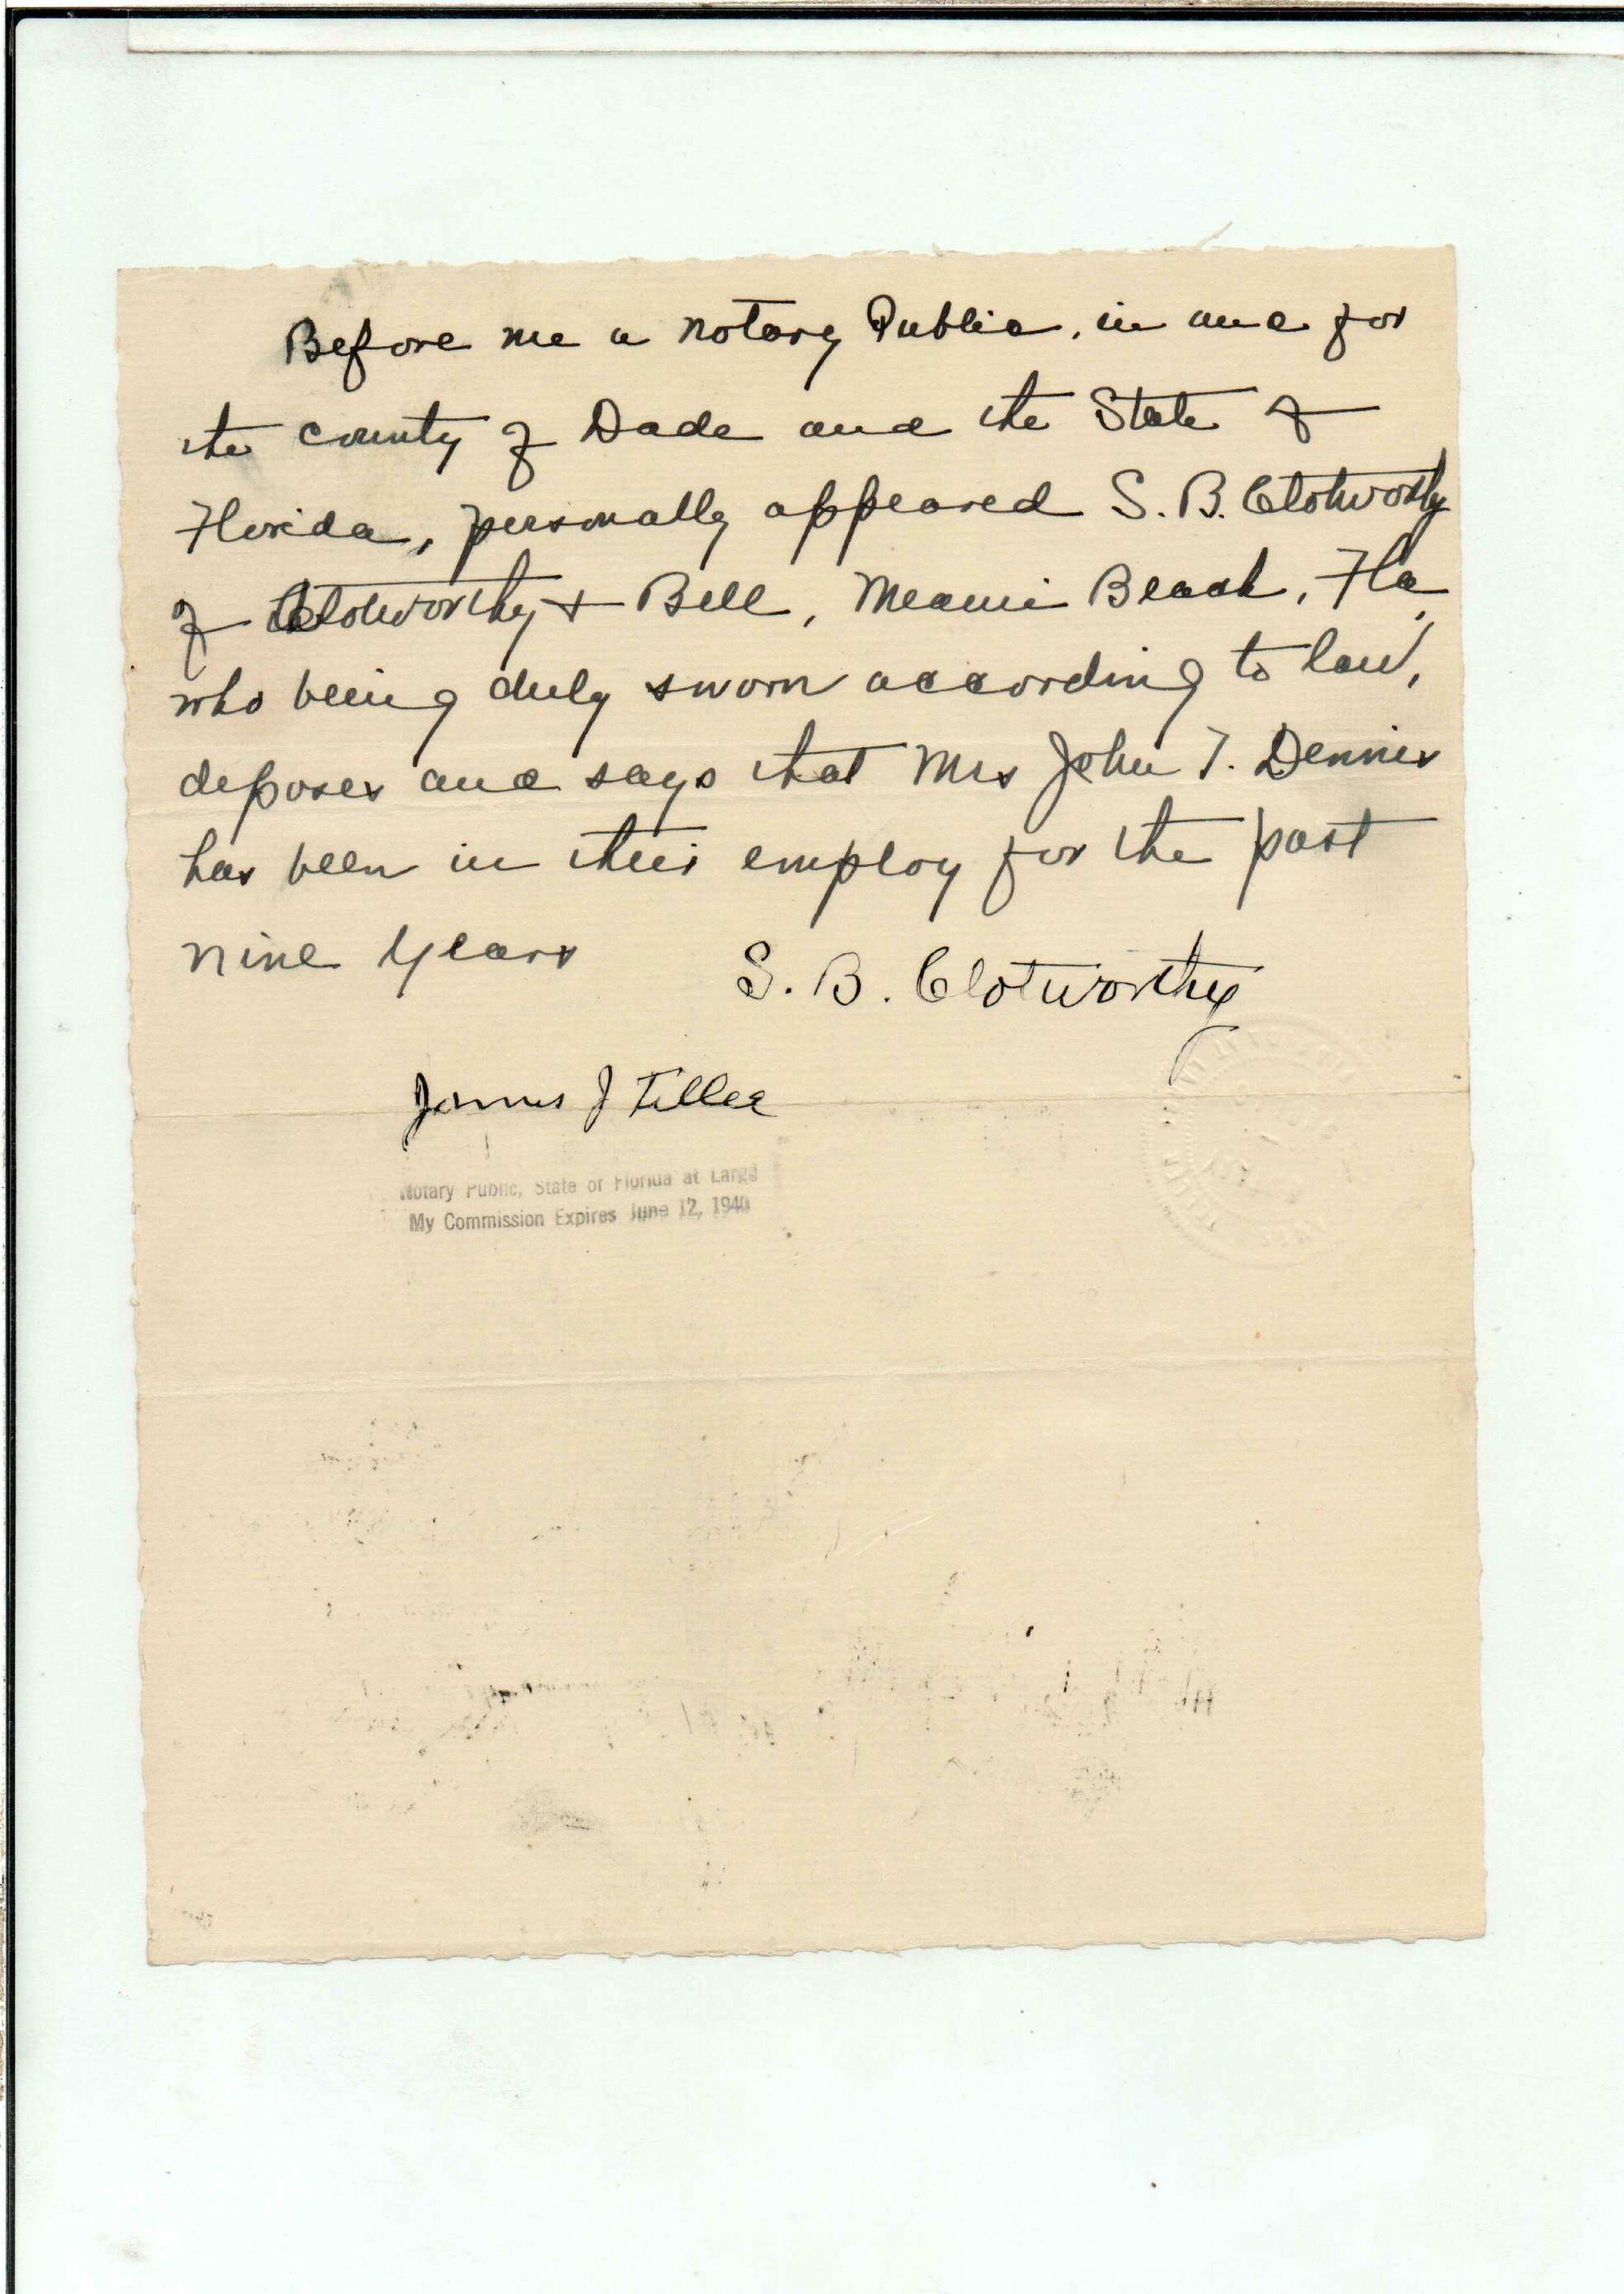 Before me a Notary Public, in and for
the county of Dade and the State of
Florida, personally appeared S. B. Clotworthy
of Clotworthy + Bell, Miami Beach, Fla,
who being duly sworn according to law,
deposes and says that Mrs John T. Dennis
has been in their employ for the past
nine years
S. B. Clotworthy
James J
Notary Public, State of Florida at Large
My Commission Expires June 12, 1940